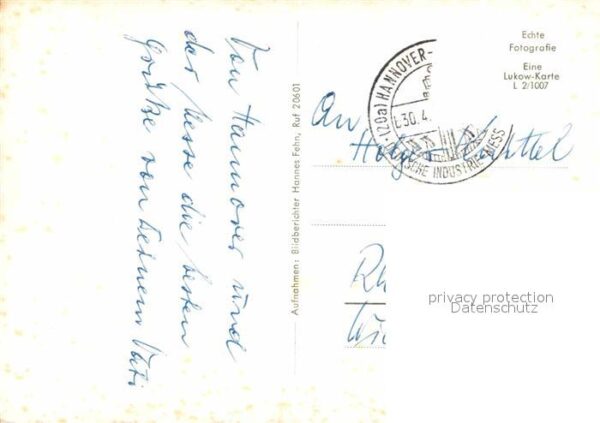 Von Hannover und
der Messe die besten
Grüße von Deinem Vati
Aufnahmen: Bildberichter Hannes Fehn, Ruf 20601
Echte
Fotografie
Eine
Lukow-Karte
L 2/1007
(20a) HANNOVER-
30.4.
SCHE INDUSTRIE-MESS
An
Holger
privacy protection
Datenschutz